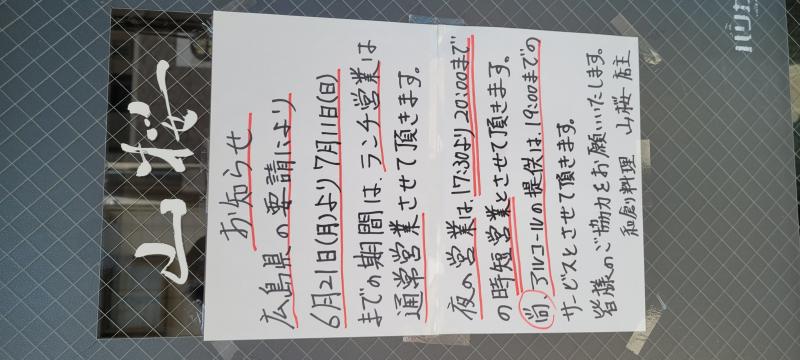 山桜
お知らせ
広島県の要請により
6月21日(月)より7月11日(日)
までの期間は、ランチ営業は
通常営業させて頂きます。
夜の営業は、17:30より20:00まで
の時短営業とさせて頂きます。
尚、アルコールの提供は、19:00までの
サービスとさせて頂きます。
皆様のご協力をお願いいたします。
和創料理 山桜 店主